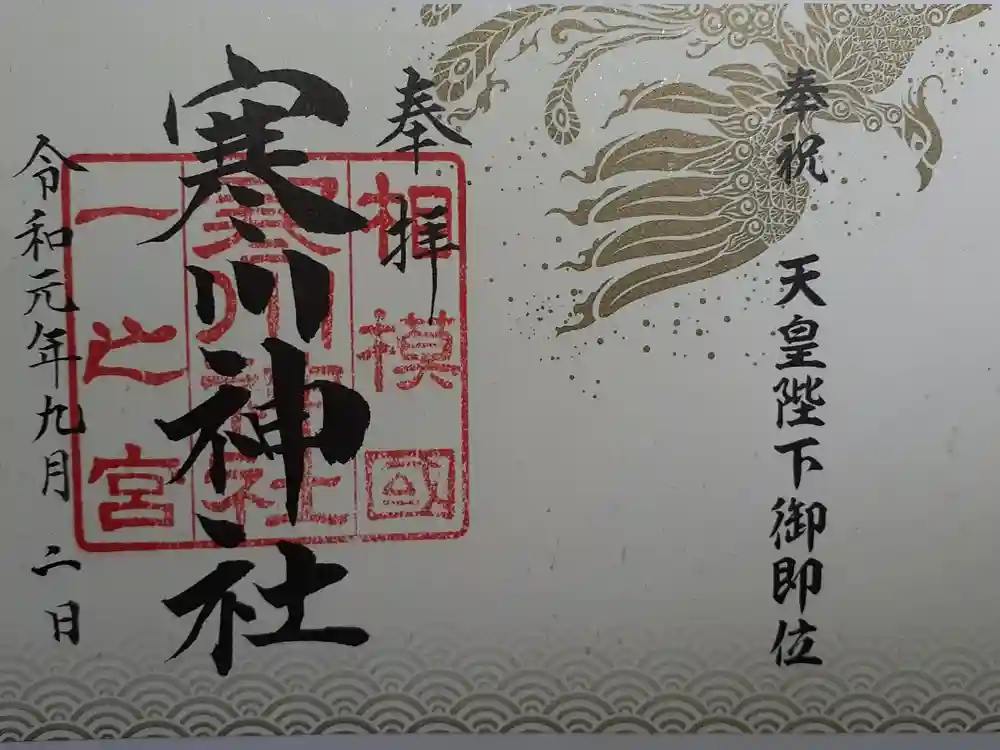 奉祝 天皇陛下御即位
奉拝
相模國
寒川神社
一之宮
寒川神社
令和元年九月二日